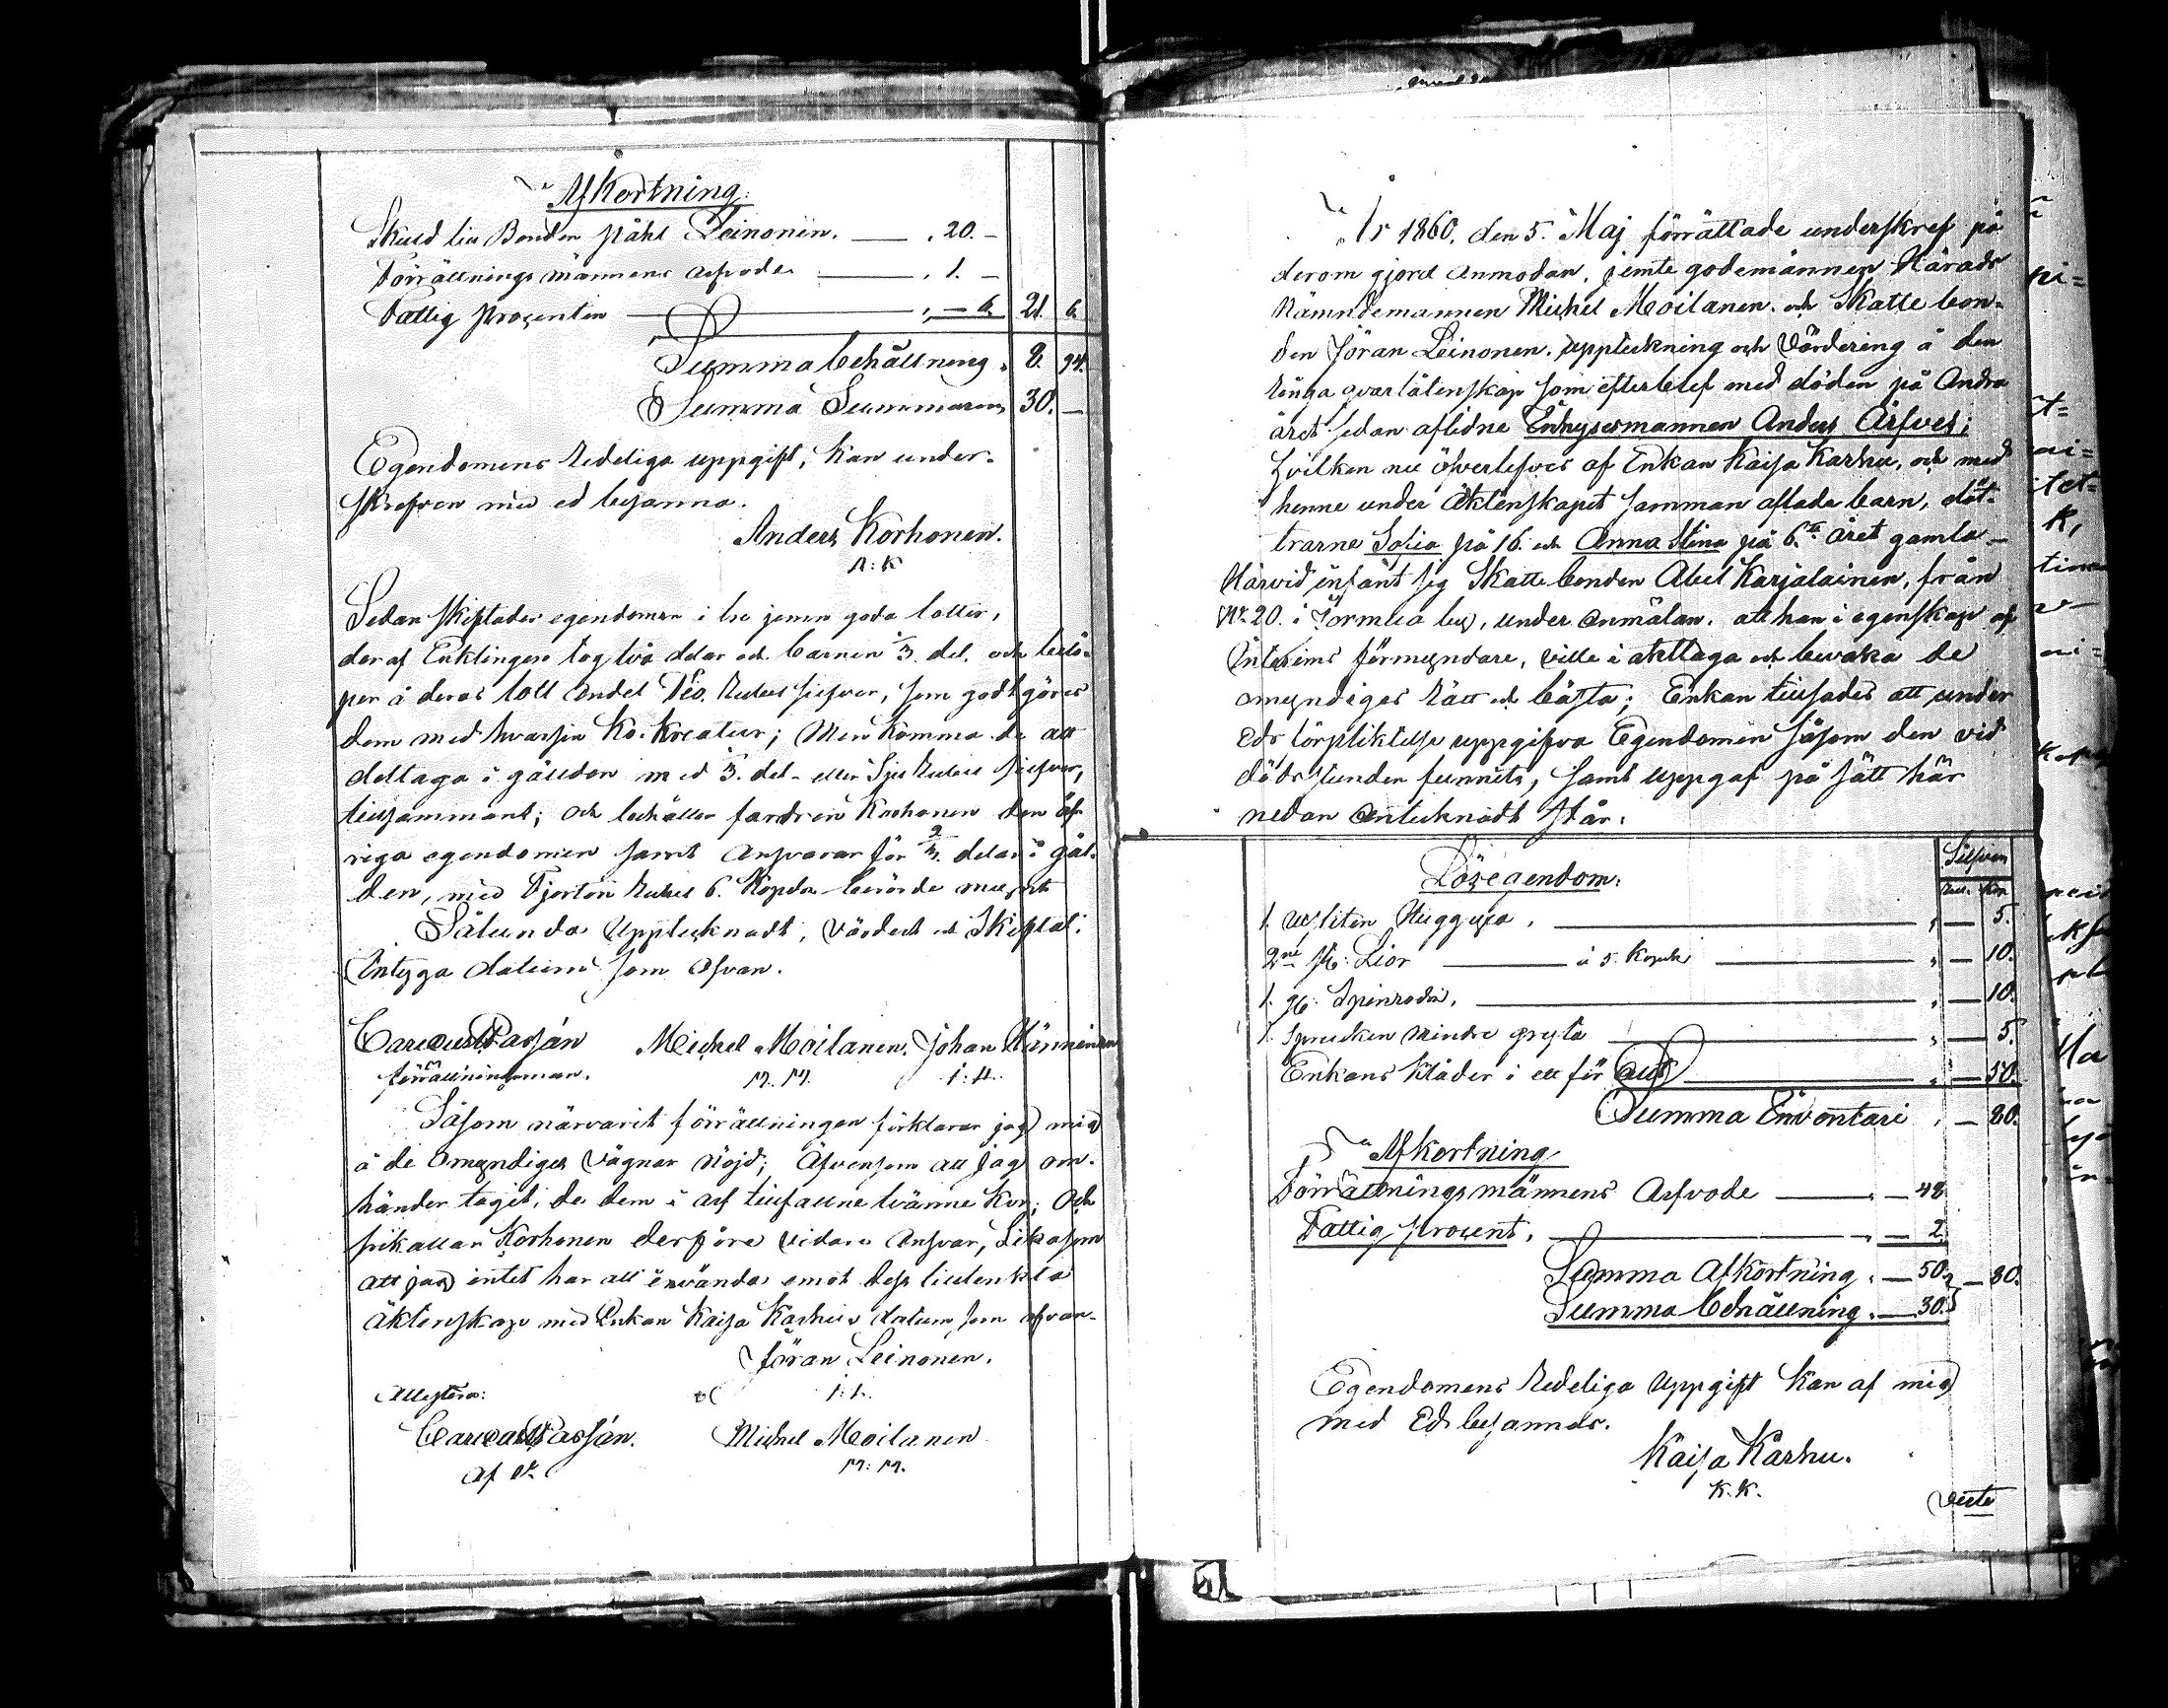 Afkortning:
Skuld till Bonden Påhl Leinonen. — „ 20. –
Förrättnings männens arfvode — „ 1. –
Fattig procenten — „ – 6. 21. 6.
Summa behållning „ 8. 94.
Summa Summarum 30. –
Egendomens redeliga uppgift, kan under-
skrefven med ed besanna.
Anders Korhonen.
A: K
Sedan skiftades egendomen i tre jemn goda lotter,
deraf Enklingen tog två delar och barnen 1/3. del, och belö-
per å deras lott andel Tio Rubel silfver, som godtgöres
dem med hvarsin Ko-kreatur; Men komma de att
deltaga i gälden med 1/3. del eller Sju Rubel silfver,
tillsammans; och behåller fadren Korhonen den öf-
riga egendomen samt ansvarar för 2/3. delar i gäl-
den, med Fjorton Rubel 6. Kopek
Sålunda Upptecknadt, värdert och Skiftat;
Intyga datum som ofvan.
Carl Aug. Passján Michel Moilanen. Johan Hänninen
förrättningsman. M. M. J: H.
Såsom närvarit förrättningen förklarar jag mig
å de omyndiges vägnar nöjd; Äfvensom att jag om-
händer tagit, de dem i arf tillfallne tvänne Kor; Och
frikallar Korhonen derföre vidare Ansvar, Likasom
att jag intet har att invända emot dess tilltänkta
äktenskap med Enkan Kaisa Karhu, datum som ofvan.
Jöran Leinonen.
Attestera: J: L.
Carl Aug. Passján. Michel Moilanen
M: M.
År 1860. den 5. Maj förrättade underskref på
derom gjord anmodan, jemte godemännen Härads
Nämndemannen Michel Moilanen och Skatte bon-
den Jöran Leinonen, uppteckning och Värdering å den
ringa qvarlåtenskap som efterblef med döden på Andra
året sedan aflidne Inhysesmannen Anders Ärfves;
hvilken nu öfverlefves af Enkan Kaisa Karhu, och med
henne under Äktenskapet samman aflade barn, döt-
trarne Sofia på 16. och Anna Stina på 6.te året gamla –
Härvid infant sig Skatte bonden Abel Karjalainen, från
No 20. i Jormua by, under anmälan, att han i egenskap af
Interims förmyndare, ville i akttaga och bevaka de
omyndiges rätt och bästa; Enkan tillsades att under
Eds förpliktelse uppgifva Egendomen såsom den vid
dödsstunden funnits, samt uppgaf på sätt här
nedan antecknadt står:
Silfver
Lösegendom: Rub. Kop.
1. utsliten Huggyxa, — „ — 5.
2ne st: Lior — à 5. Kopek — „ — 10.
1. st: Spinrock, — „ — 10.
1. Sprucken mindre gryta — „ — 5.
Enkans Kläder i ett för allt — „ — 50.
Summa Inventari „ — 80.
Afkortning
Förrättnings männens Arfvode — „ — 48
Fattig procent, — „ — 2.
Summa Afkortning „ — 50. } — 80.
Summa behållning „ — 30.
Egendomens redeliga Uppgift kan af mig
med Ed besannas.
Kaisa Karhu.
K. K.
Verte